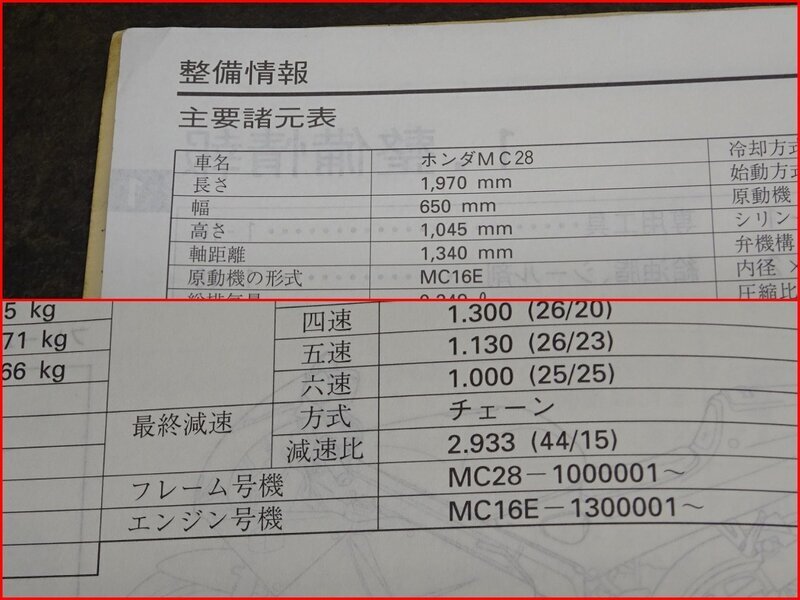 整備情報
主要諸元表
車名 ホンダMC28 冷却方式
長さ 1,970 mm 始動方式
幅 650 mm 原動機
高さ 1,045 mm シリン
軸距離 1,340 mm 弁機構
原動機の形式 MC16E 内径 ×
圧縮比
5 kg 四速 1.300 (26/20)
71 kg 五速 1.130 (26/23)
66 kg 六速 1.000 (25/25)
最終減速 方式 チェーン
減速比 2.933 (44/15)
フレーム号機 MC28－1000001～
エンジン号機 MC16E－1300001～